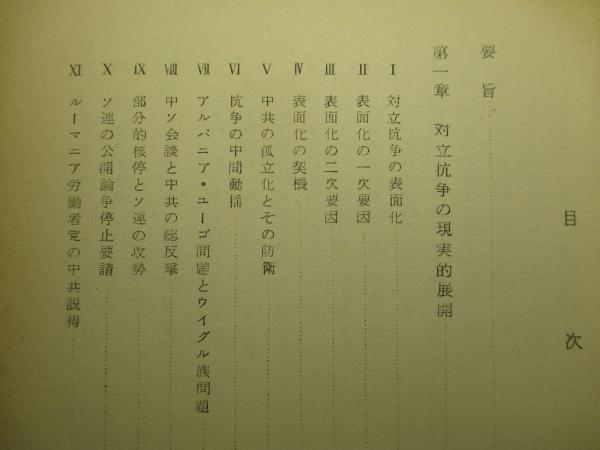 目次
要旨
第一章 対立抗争の現実的展開
Ⅰ 対立抗争の表面化
Ⅱ 表面化の一次要因
Ⅲ 表面化の二次要因
Ⅳ 表面化の契機
Ⅴ 中共の孤立化とその防衛
Ⅵ 抗争の中間動揺
Ⅶ アルバニア・ユーゴ問題とウイグル族問題
Ⅷ 中ソ会談と中共の総反撃
Ⅸ 部分的核停とソ連の攻勢
Ⅹ ソ連の公開論争停止要請
Ⅺ ルーマニア労働者党の中共説得